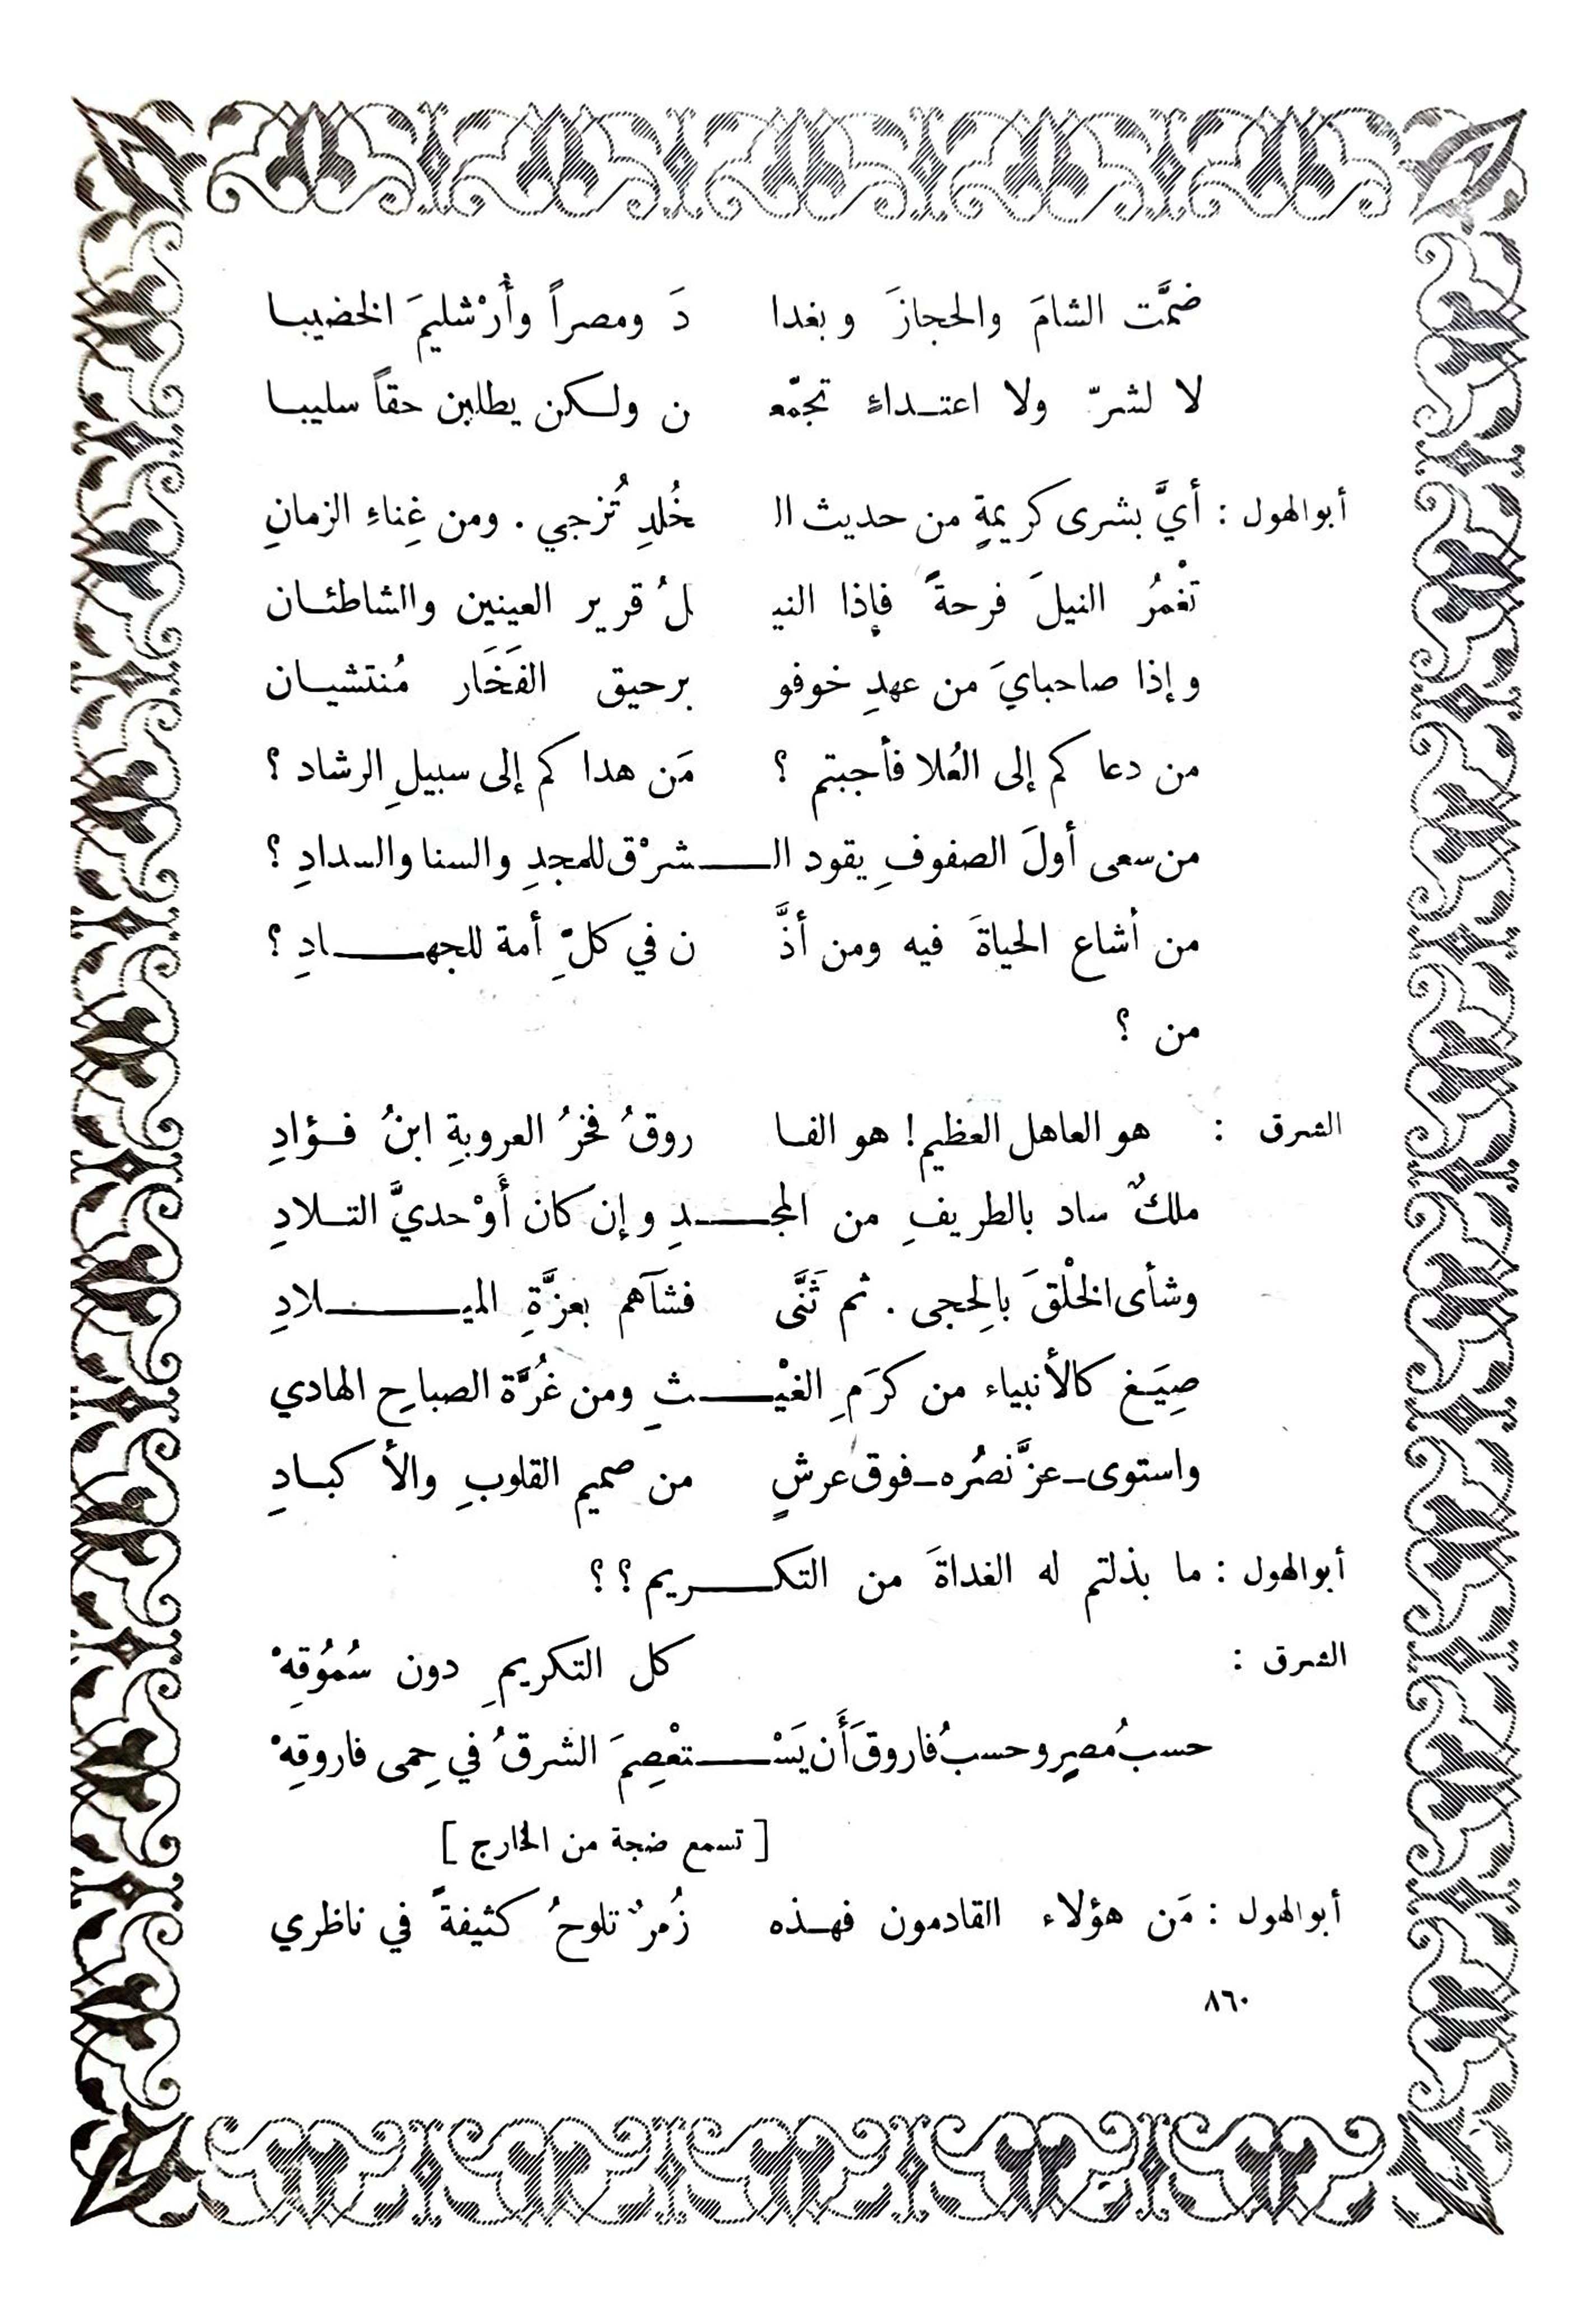 ضمَّت الشامَ والحجازَ وبغدا دَ ومصراً وأُرْشليمَ الخضيبا
لا لشرّ ولا اعتداءٍ تجمّعـ ن ولكن يطلبن حقاً سليبا
أبو الهول : أيَّ بشرى كريمةٍ من حديث الـ خُلدِ تُزجي . ومن غِناءِ الزمانِ
تغْمرُ النيلَ فرحةً فإذا النيـ لُ قرير العينين والشاطئان
وإذا صاحبايَ من عهدِ خوفو برحيق الفَخَار مُنتشيان
من دعا كم إلى العُلا فأجبتم ؟ مَن هدا كم إلى سبيلِ الرشاد ؟
من سعى أولَ الصفوفِ يقود الـشرْق للمجدِ والسنا والسدادِ ؟
من أشاع الحياةَ فيه ومن أذَّ ن في كلِّ أمة للجهادِ ؟
من ؟
الشرق : هو العاهل العظيم ! هو الفا روقُ فخرُ العروبةِ ابنُ فؤادِ
ملكٌ ساد بالطريفِ من المجـدِ وإن كان أَوْحديَّ التلادِ
وشأى الخلْقَ بالحِجى . ثم ثَنَّى فشآهم بعزَّةِ الميلادِ
صِيَغ كالأنبياء من كرَمِ الغيْـثِ ومن غُرَّة الصباحِ الهادي
واستوى - عزَّ نصرُه - فوق عرشٍ من صميم القلوبِ والأكبادِ
أبو الهول : ما بذلتم له الغداةَ من التكريم ؟ ؟
الشرق : كل التكريمِ دون سُمُوقِهْ
حسبُ مصرٍ وحسبُ فاروقَ أَن يَسْـتعْصِمَ الشرقُ في حِمى فاروقِهْ
[ تسمع ضجة من الخارج ]
أبو الهول : مَن هؤلاء القادمون فهذه زُمرٌ تلوحُ كثيفةً في ناظري
٨٦٠